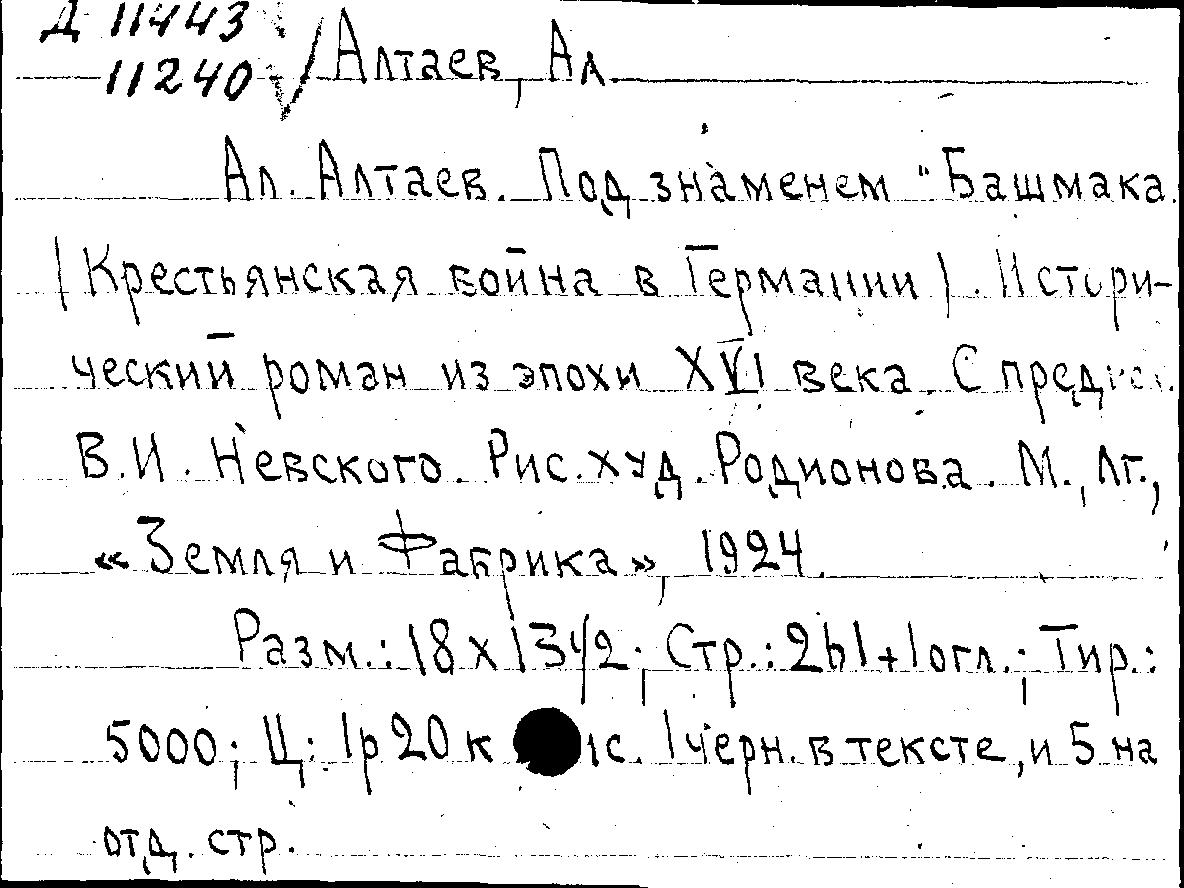 Д 11443
11240 √ Алтаев, Ал.
Ал. Алтаев. Под знаменем "Башмака.
/Крестьянская война в Германии/. Истори-
ческий роман из эпохи XVI века. С
В.И. Невского. Рис. худ. Родионова. М., Лг.,
«Земля и Фабрика», 1924.
Разм.: 18 х 13 1/2; Стр.: 261+1 огл.; Тир.:
5000; Ц: 1р 20 к 1 черн. в тексте, и 5 на
отд. стр.